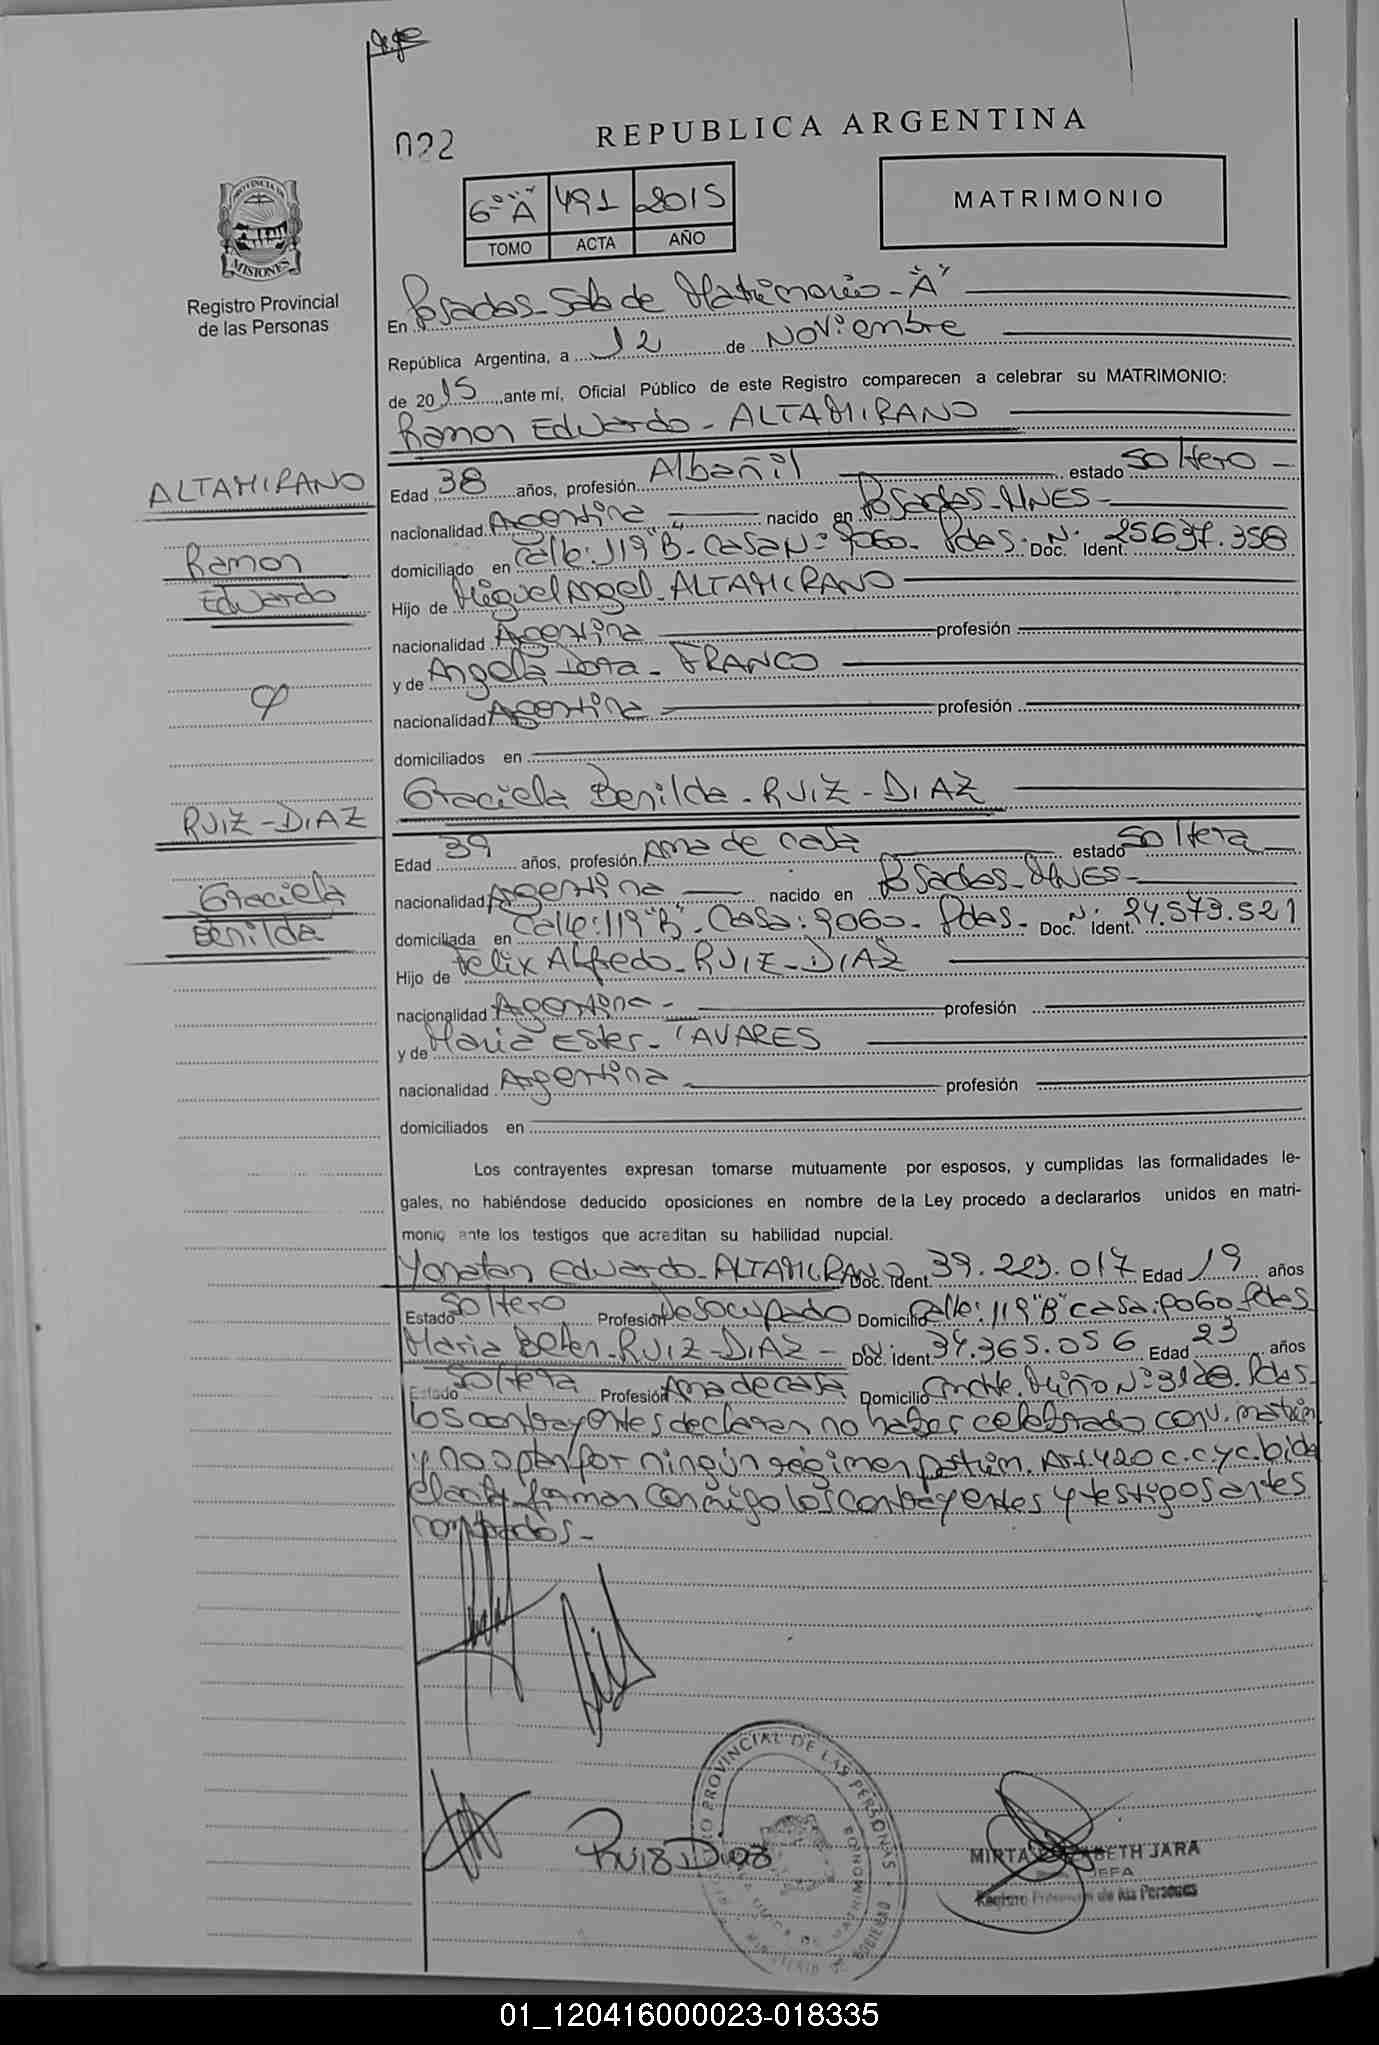 022
REPUBLICA ARGENTINA
6º "A" 491 2015
TOMO ACTA AÑO
MATRIMONIO
PROVINCIA DE
MISIONES
Registro Provincial
de las Personas
En Posadas - Sala de Matrimonio - "A"
República Argentina, a 12 de Noviembre
de 2015, ante mí, Oficial Público de este Registro comparecen a celebrar su MATRIMONIO:
Ramon Eduardo - ALTAMIRANO
ALTAMIRANO
Ramon
Eduardo
Edad 38 años, profesión Albañil estado Soltero -
nacionalidad Argentina nacido en Posadas - MNES -
domiciliado en Calle: 119 "B" - Casa Nº 9060 - Pdas - Doc. Nº Ident. 25637.358
Hijo de Miguel Angel - ALTAMIRANO
nacionalidad Argentina profesión
y de Angela Dora - FRANCO
nacionalidad Argentina profesión
domiciliados en
Graciela Benilda - RUIZ - DIAZ
RUIZ - DIAZ
Graciela
Benilda
Edad 39 años, profesión Ama de casa estado Soltera
nacionalidad Argentina nacido en Posadas - MNES -
domiciliada en Calle: 119 "B" - Casa: 9060 - Pdas - Doc. Nº Ident. 24.573.521
Hijo de Felix Alfredo - RUIZ - DIAZ
nacionalidad Argentina - profesión
y de Maria Ester - TAVARES
nacionalidad Argentina profesión
domiciliados en
Los contrayentes expresan tomarse mutuamente por esposos, y cumplidas las formalidades le-
gales, no habiéndose deducido oposiciones en nombre de la Ley procedo a declararlos unidos en matri-
monio ante los testigos que acreditan su habilidad nupcial.
Yonatan Eduardo - ALTAMIRANO Doc. Ident. 39.223.017 Edad 19 años
Estado Soltero Profesión Desocupado Domicilio Calle: 119 "B" casa: 9060 Pdas
Maria Belen - RUIZ - DIAZ - Doc. ident. 37.365.056 Edad 23 años
Estado Soltera Profesión Ama de casa Domicilio Miño Nº 3128 - Pdas -
los contrayentes declaran no haber celebrado conv. matrim
y no optan por ningún régimen patrim. Art. 420 c.c.y c. leida
el acta firman conmigo los contrayentes y testigos antes
nombrados -
RUIZ DIAZ
PROVINCIAL DE LAS PERSONAS
MIRTA ELIZABETH JARA
JEFA
Registro Provincial de las Personas
01_120416000023-018335